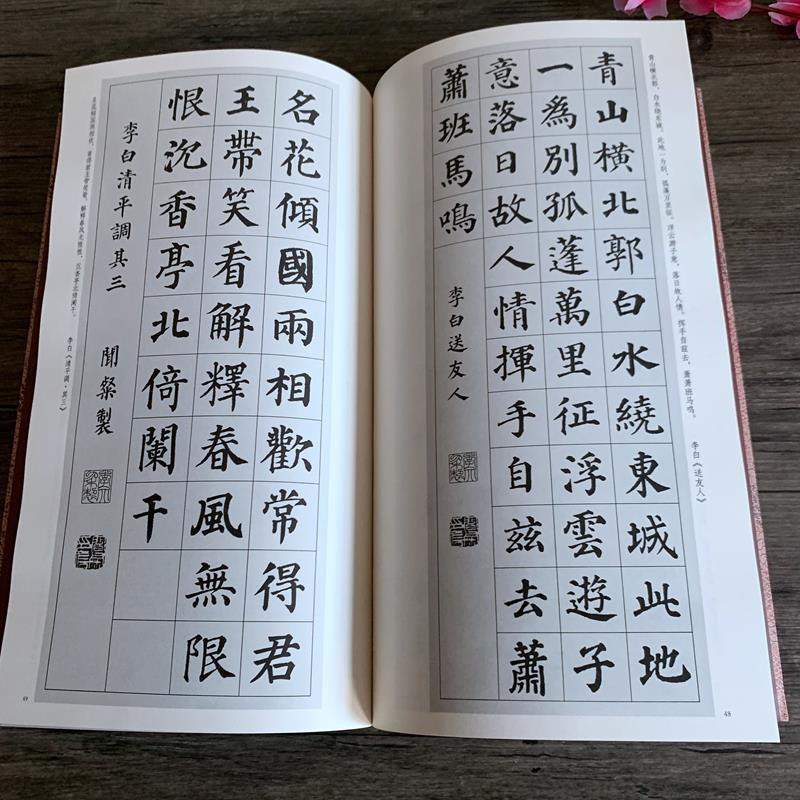 青山橫北郭白水繞東城此地
一爲別孤蓬萬里征浮雲遊子
意落日故人情揮手自茲去蕭
蕭班馬鳴
李白送友人
青山横北郭，白水绕东城。此地一为别，孤蓬万里征。浮云游子意，落日故人情。挥手自兹去，萧萧班马鸣。
李白《送友人》
48
名花傾國兩相歡常得君
王帶笑看解釋春風無限
恨沉香亭北倚闌千
李白清平調其三
聞粲製
名花倾国两相欢，常得君王带笑看。解释春风无限恨，沉香亭北倚阑干。
李白《清平调·其三》
49